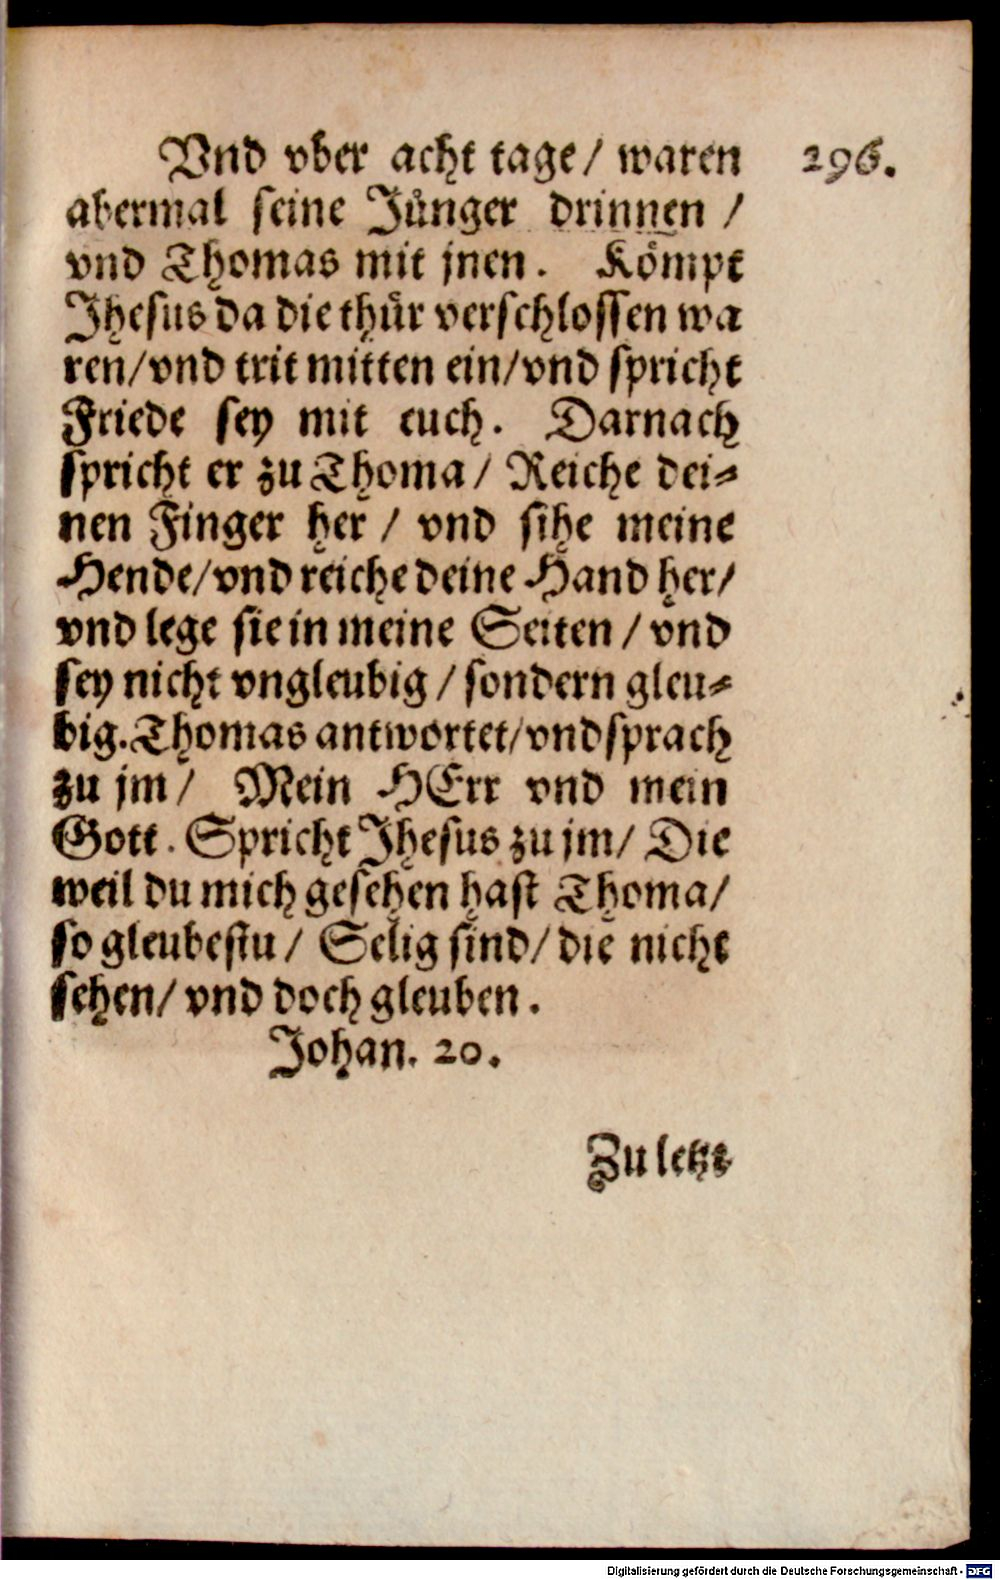 Vnd vber acht tage/ waren
296.
abermal seine Jünger drinnen /
vnd Thomas mit jnen. Kömpt
Jhesus da die thür verschlossen wa
ren/vnd trit mitten ein/vnd spricht
Friede sey mit euch. Darnach
spricht er zu Thoma/ Reiche dei-
nen Finger her / vnd sihe meine
Hende/vnd reiche deine Hand her/
vnd lege sie in meine Seiten / vnd
sey nicht vngleubig / sondern gleu-
big. Thomas antwortet/vnd sprach
zu jm/ Mein HErr vnd mein
Gott. Spricht Jhesus zu jm/ Die
weil du mich gesehen hast Thoma/
so gleubestu/ Selig sind/ die nicht
sehen/ vnd doch gleuben.
Johan. 20.
Zu letzt
Digitalisierung gefördert durch die Deutsche Forschungsgemeinschaft - DFG